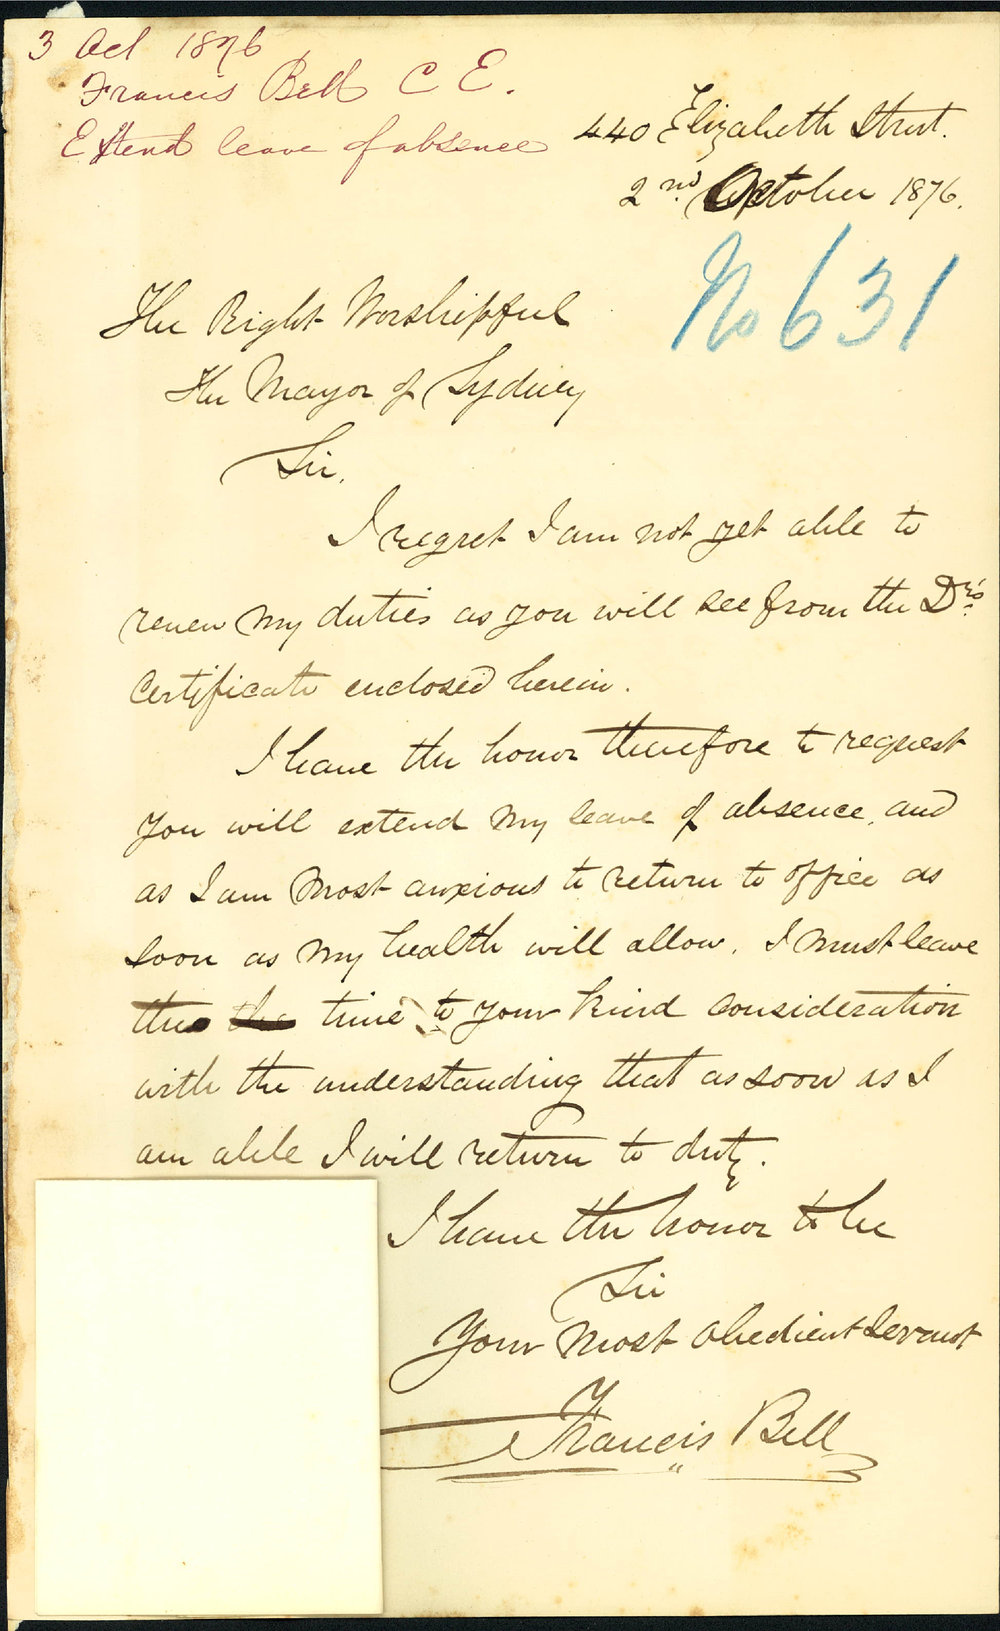 3 Oct 1876
Francis Bell C E.
Extend leave of absence
440 Elizabeth Street.
2nd October 1876.
No 631
The Right Worshipful
The Mayor of Sydney
Sir,
I regret I am not yet able to
renew my duties as you will see from the Drs
Certificate enclosed herein.
I have the honor therefore to request
you will extend my leave of absence, and
as I am most anxious to return to office as
soon as my health will allow, I must leave
the time to your kind consideration
with the understanding that as soon as I
am able I will return to duty.
I have the honor to be
Sir
Your most obedient Servant
Francis Bell